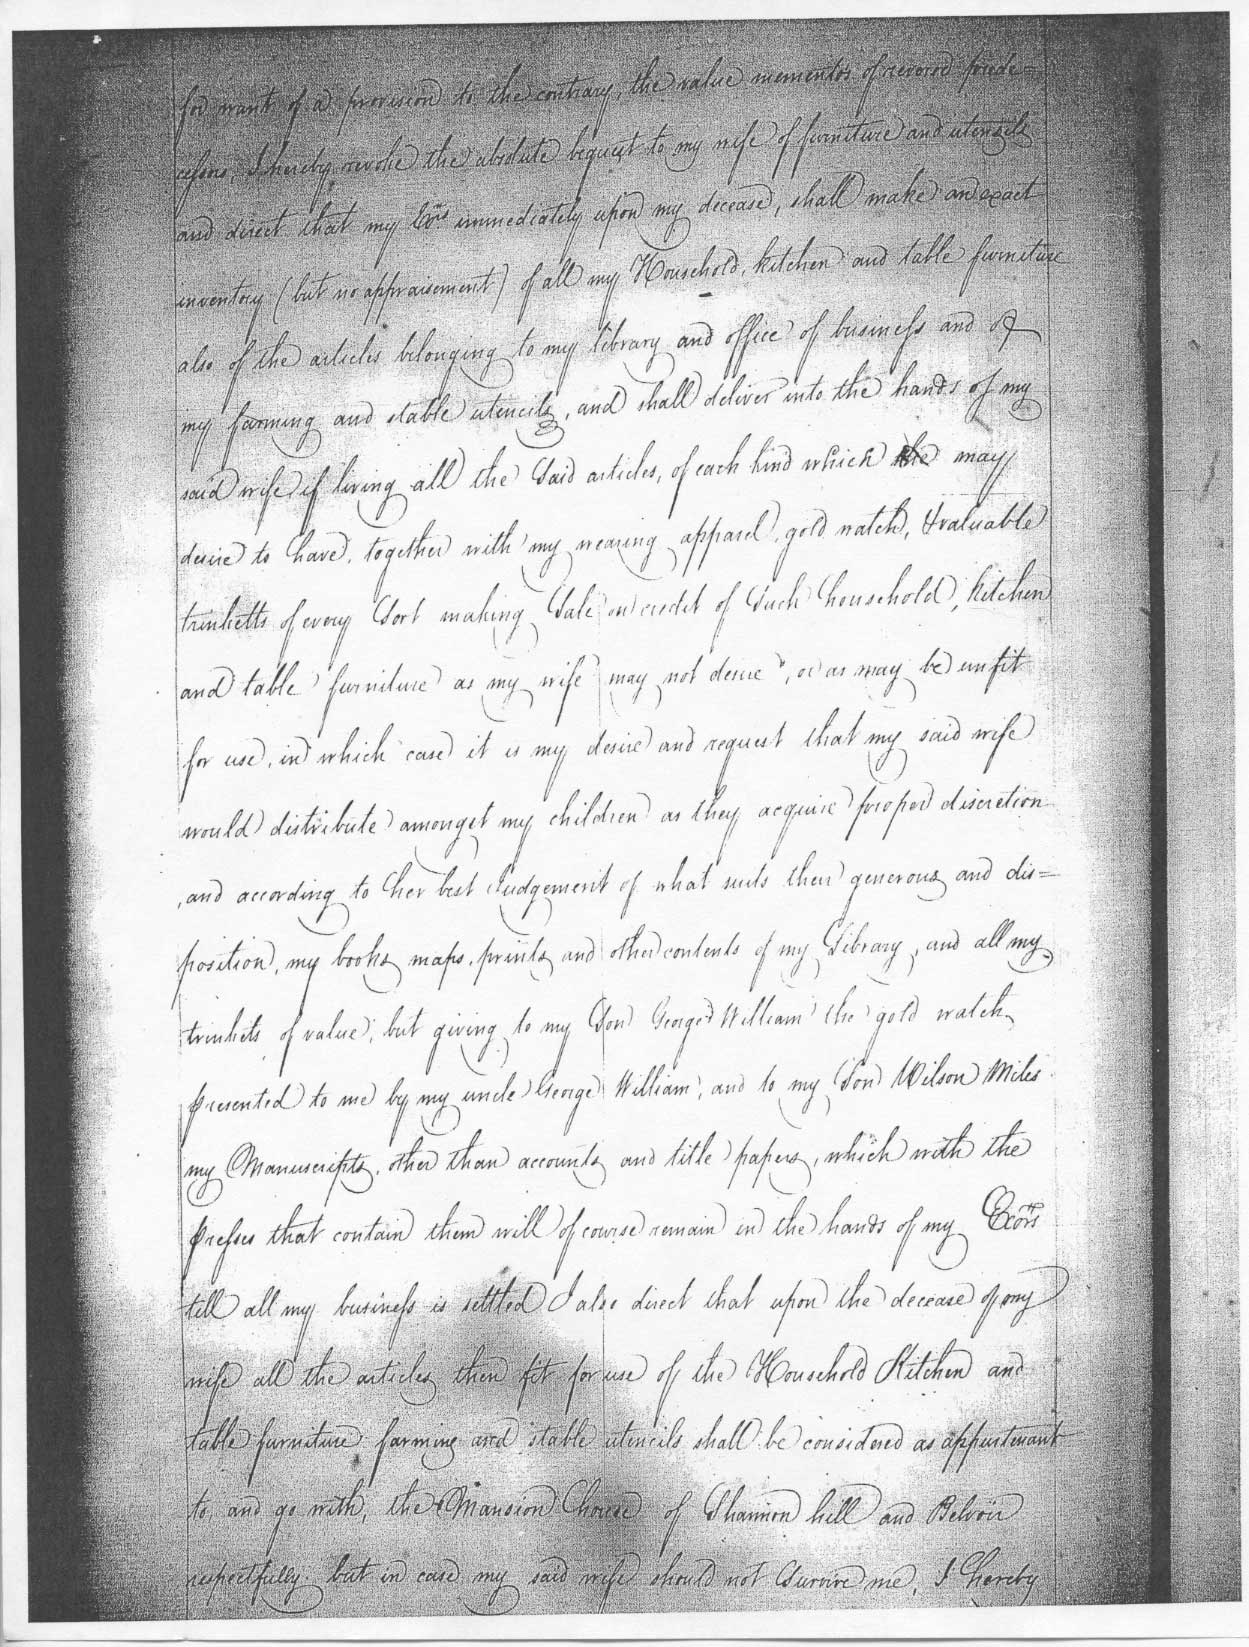 for want of a provision to the contrary, the value mementos of revered prede=
cessors, I hereby revoke the absolute bequest to my wife of furniture and utensils
and direct that my Exrs immediately upon my decease, shall make an exact
inventory (but no appraisement) of all my Household, kitchen and table furniture
also of the articles belonging to my library and office of business and of
my farming and stable utencils, and shall deliver into the hands of my
said wife if living all the Said articles, of each kind which she may
desire to have, together with my wearing apparel, gold watch, & valuable
trinketts of every Sort making Sale on credit of Such household, kitchen
and table furniture as my wife may not desire, or as may be unfit
for use, in which case it is my desire and request that my said wife
would distribute amongst my children as they acquire proper discretion
and according to her best Judgement of what suits their generous and dis=
position, my books maps, prints and other contents of my Library, and all my
trinkets of value, but giving to my Son George William the gold watch
presented to me by my uncle George William, and to my Son Wilson Miles
my Manuscripts, other than accounts and title papers, which with the
presses that contain them will of course remain in the hands of my Ecors
till all my business is settled I also direct that upon the decease of my
wife all the articles then fit for use of the Household Kitchen and
table furniture farming and stable utencils shall be considered as appurtenant
to, and go with, the Mansion House of Shannon hill and Belvoir
respectfully but in case my said wife should not Survive me, I hereby